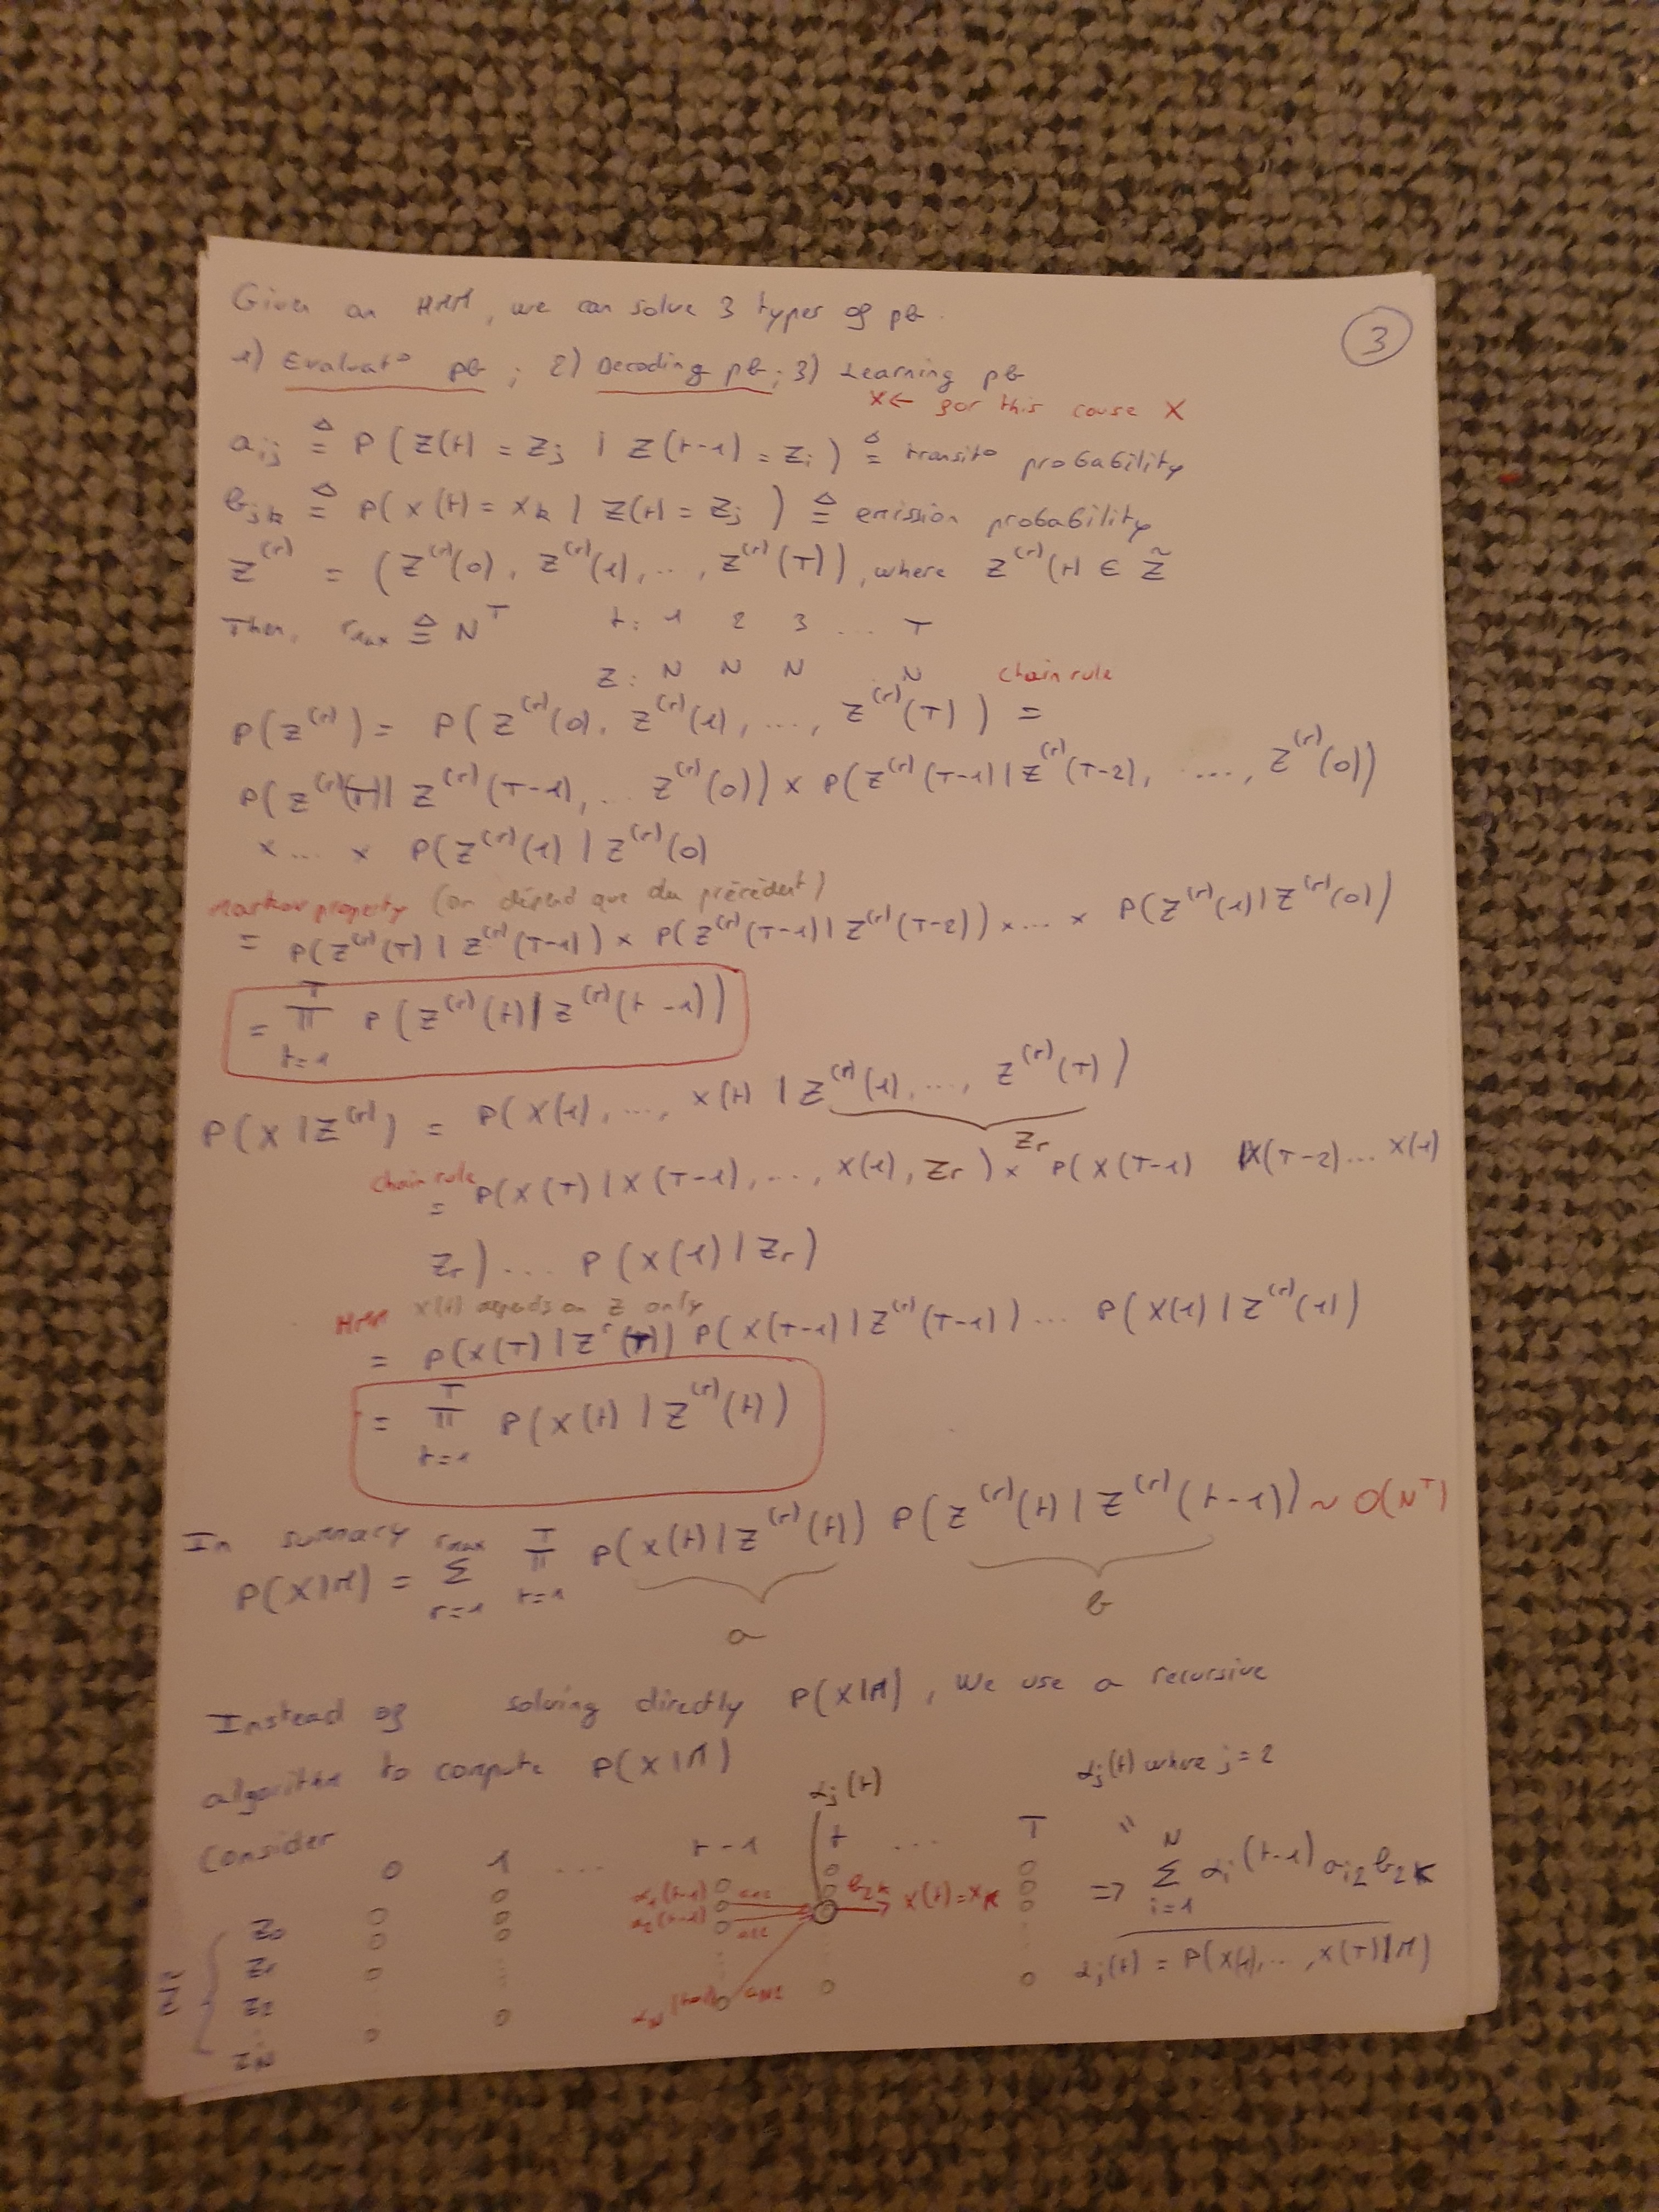 Given an HMM, we can solve 3 types of pb.
3
1) Evaluat° pb ; 2) Decoding pb ; 3) Learning pb
X ← for this couse X
a_ij ≜ P ( Z(t) = Z_j | Z(t-1) = Z_i ) ≜ transit° probability
b_jk ≜ P( x(t) = x_k | Z(t) = Z_j ) ≜ emission probability
Z^(r) = ( Z^(r)(0), Z^(r)(1), ..., Z^(r)(T) ), where Z^(r)(t) ∈ Z̃
Then, r_max ≜ N^T t: 1 2 3 ... T
Z: N N N ... N
chain rule
P(Z^(r)) = P( Z^(r)(0), Z^(r)(1), ..., Z^(r)(T) ) =
P( Z^(r)(T) | Z^(r)(T-1), ... Z^(r)(0)) × P(Z^(r)(T-1) | Z^(r)(T-2), ...., Z^(r)(0))
× ... × P(Z^(r)(1) | Z^(r)(0)
Markov property (on dépend que du précédent)
= P(Z^(r)(T) | Z^(r)(T-1)) × P(Z^(r)(T-1) | Z^(r)(T-2)) × ... × P(Z^(r)(1) | Z^(r)(0))
= ∏_{t=1}^{T} P( Z^(r)(t) | Z^(r)(t-1))
P(X | Z^(r)) = P( X(1), ..., X(t) | Z^(r)(1), ..., Z^(r)(T) )
Z_r
chain rule
= P(X(T) | X(T-1), ..., X(1), Z_r ) × P( X(T-1) | X(T-2) ... X(1)
Z_r ) ... P ( X(1) | Z_r )
HMM X(t) depends on Z only
= P(X(T) | Z^r(T)) P( X(T-1) | Z^(r)(T-1) ) ... P( X(1) | Z^(r)(1) )
= ∏_{t=1}^{T} P( X(t) | Z^(r)(t) )
In summary
P(X|M) = ∑_{r=1}^{r_max} ∏_{t=1}^{T} P( x(t) | Z^(r)(t) ) P( Z^(r)(t) | Z^(r)(t-1) ) ~ O(N^T)
a b
Instead of solving directly P(X|M), we use a recursive
algorithm to compute P(X|M)
α_j(t) α_j(t) where j = 2
Consider 0 1 ... t-1 t ... T "
α_1(t-1) a_12 b_2k x(t) = x_k => ∑_{i=1}^{N} α_i(t-1) a_i2 b_2k
α_2(t-1) a_22
Z_0
Z_1
Z_2
Z_N
Z̃
α_N(t-1) a_N2 α_j(t) = P(X(1), .. , X(T) | M)